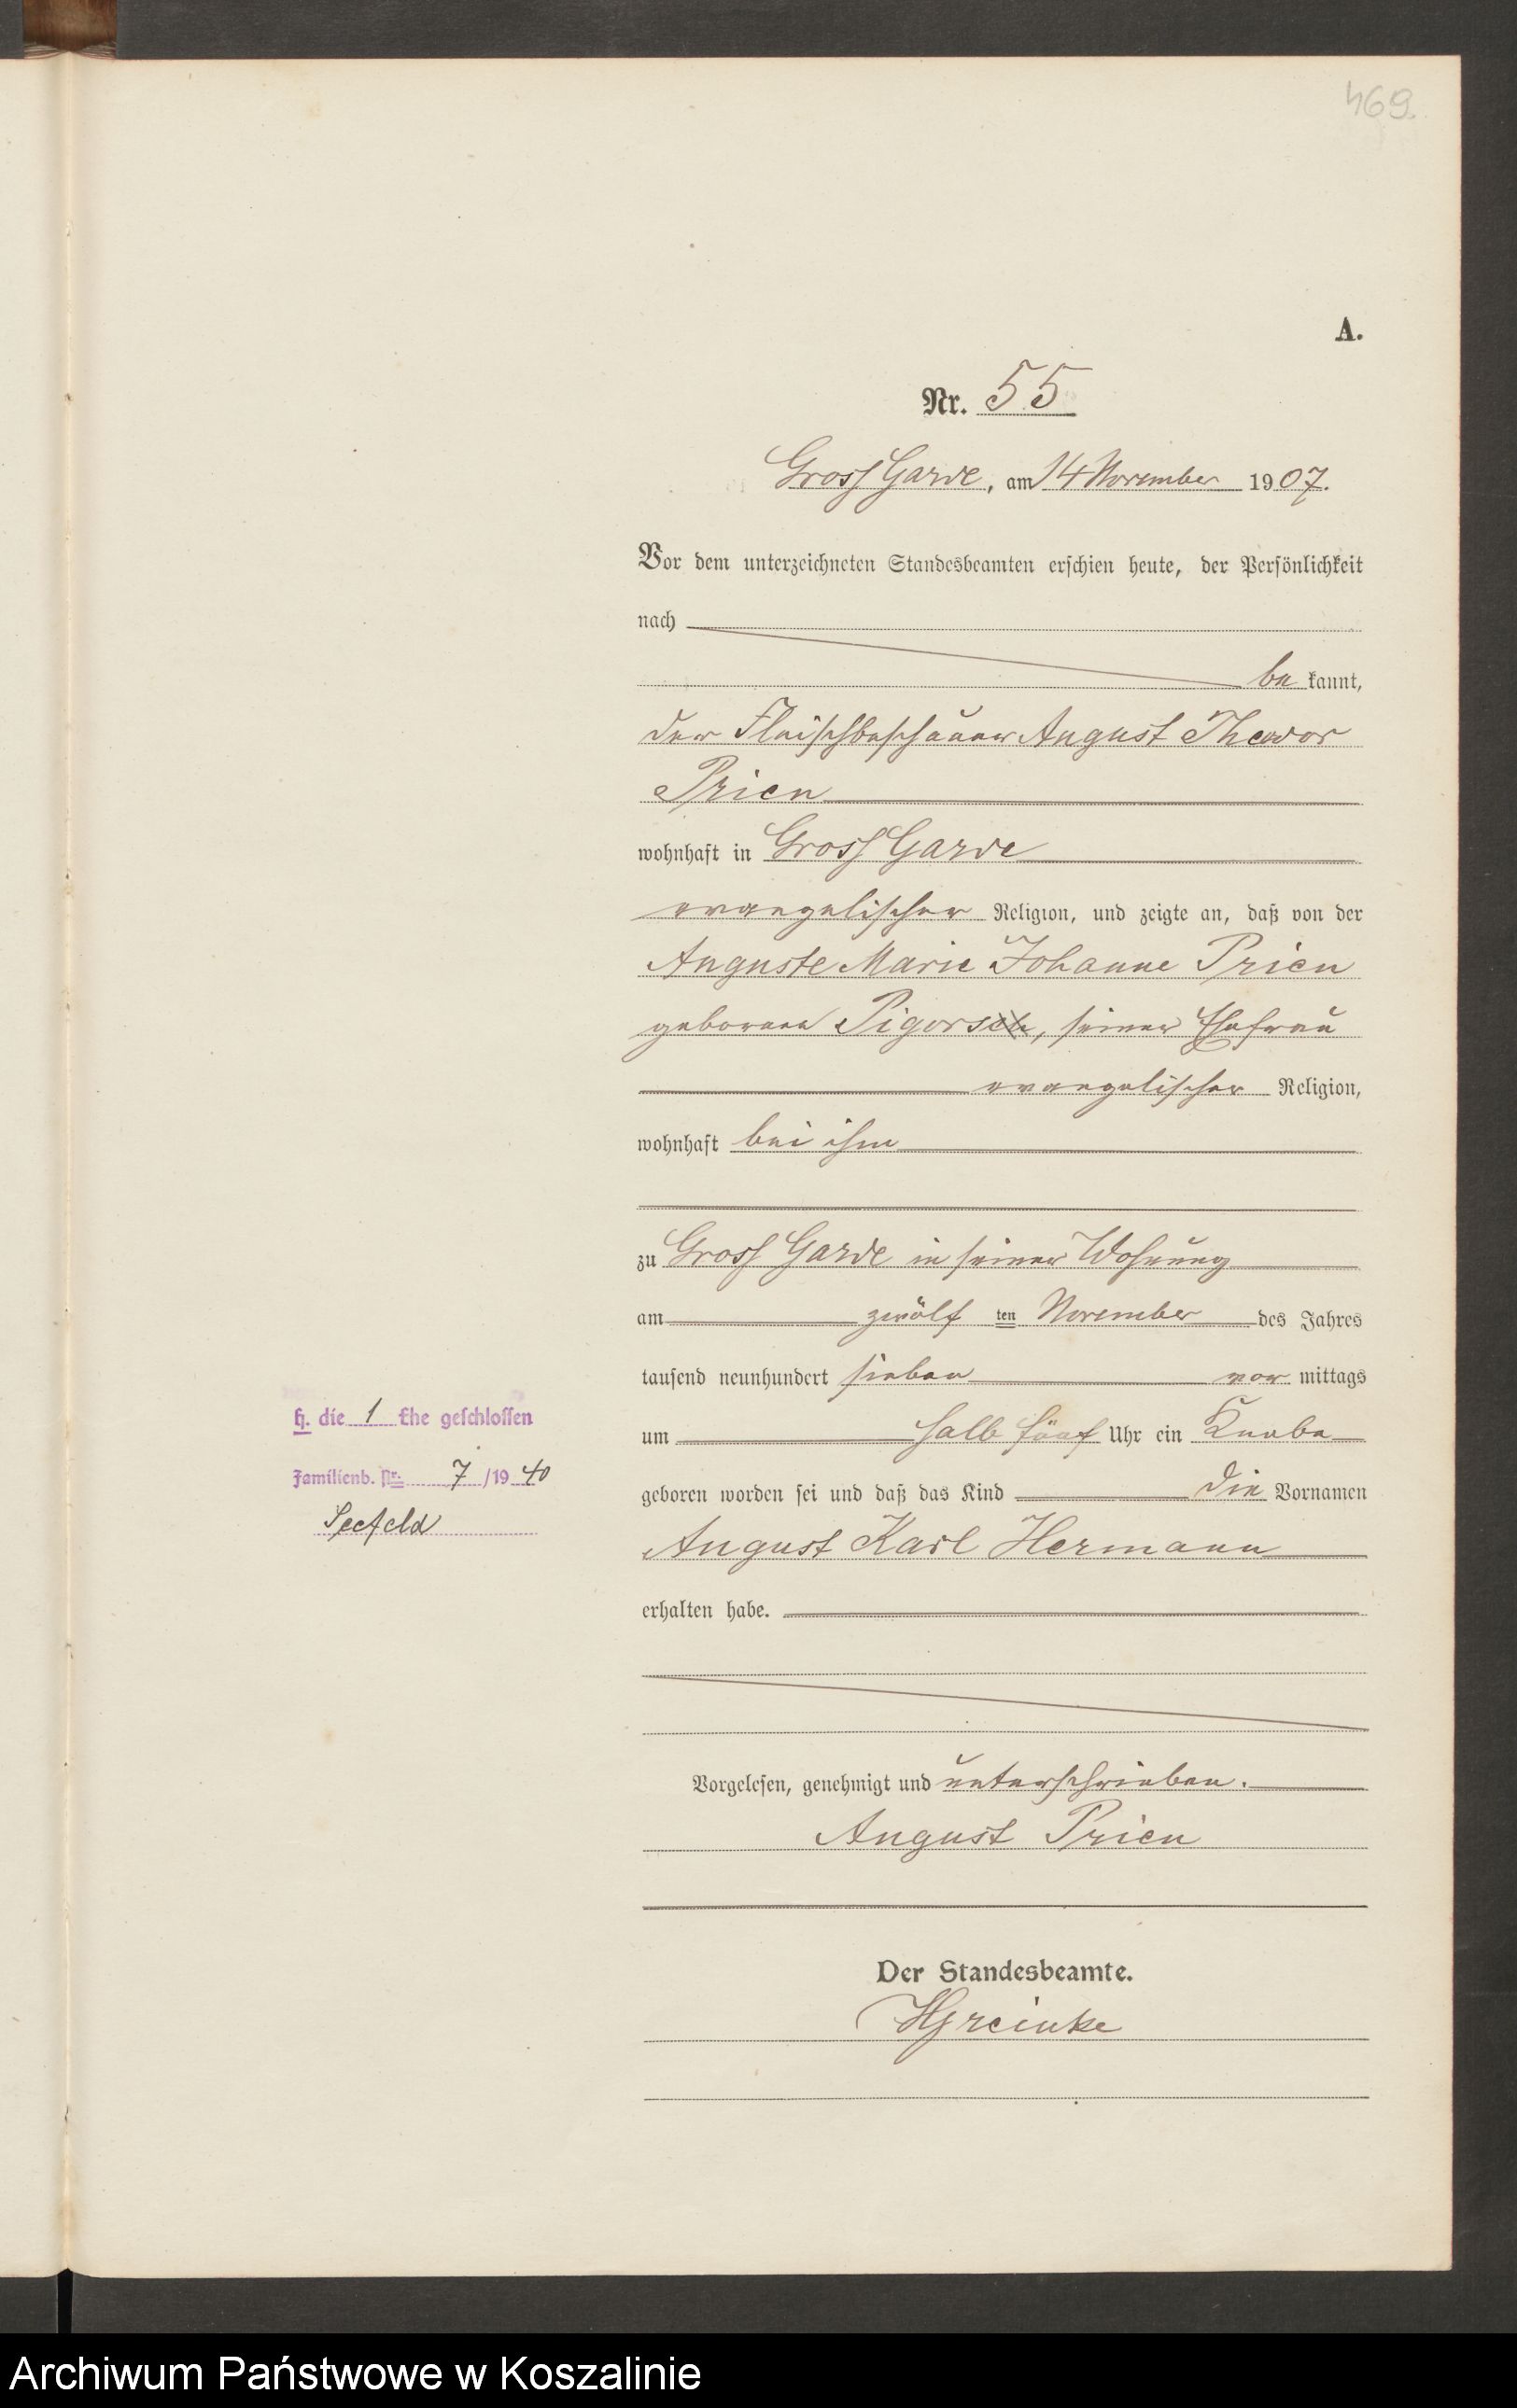 469.
A.
Nr. 55
Gross Garde, am 14 November 1907.
Vor dem unterzeichneten Standesbeamten erschien heute, der Persönlichkeit
nach
be kannt,
der Fleischbeschauer August Theodor
Prien
wohnhaft in Gross Garde
evangelischer Religion, und zeigte an, daß von der
Auguste Marie Johanne Prien
geborene Pigorsch, seiner Ehefrau
evangelischer Religion,
wohnhaft bei ihm
zu Gross Garde in seiner Wohnung
am zwölf ten November des Jahres
tausend neunhundert sieben vor mittags
um halb fünf Uhr ein Knabe
geboren worden sei und daß das Kind die Vornamen
August Karl Hermann
erhalten habe.
Vorgelesen, genehmigt und unterschrieben.
August Prien
Der Standesbeamte.
h. die 1 Ehe geschlossen
Familienb. Nr. 7/1940
Seefeld
Archiwum Państwowe w Koszalinie